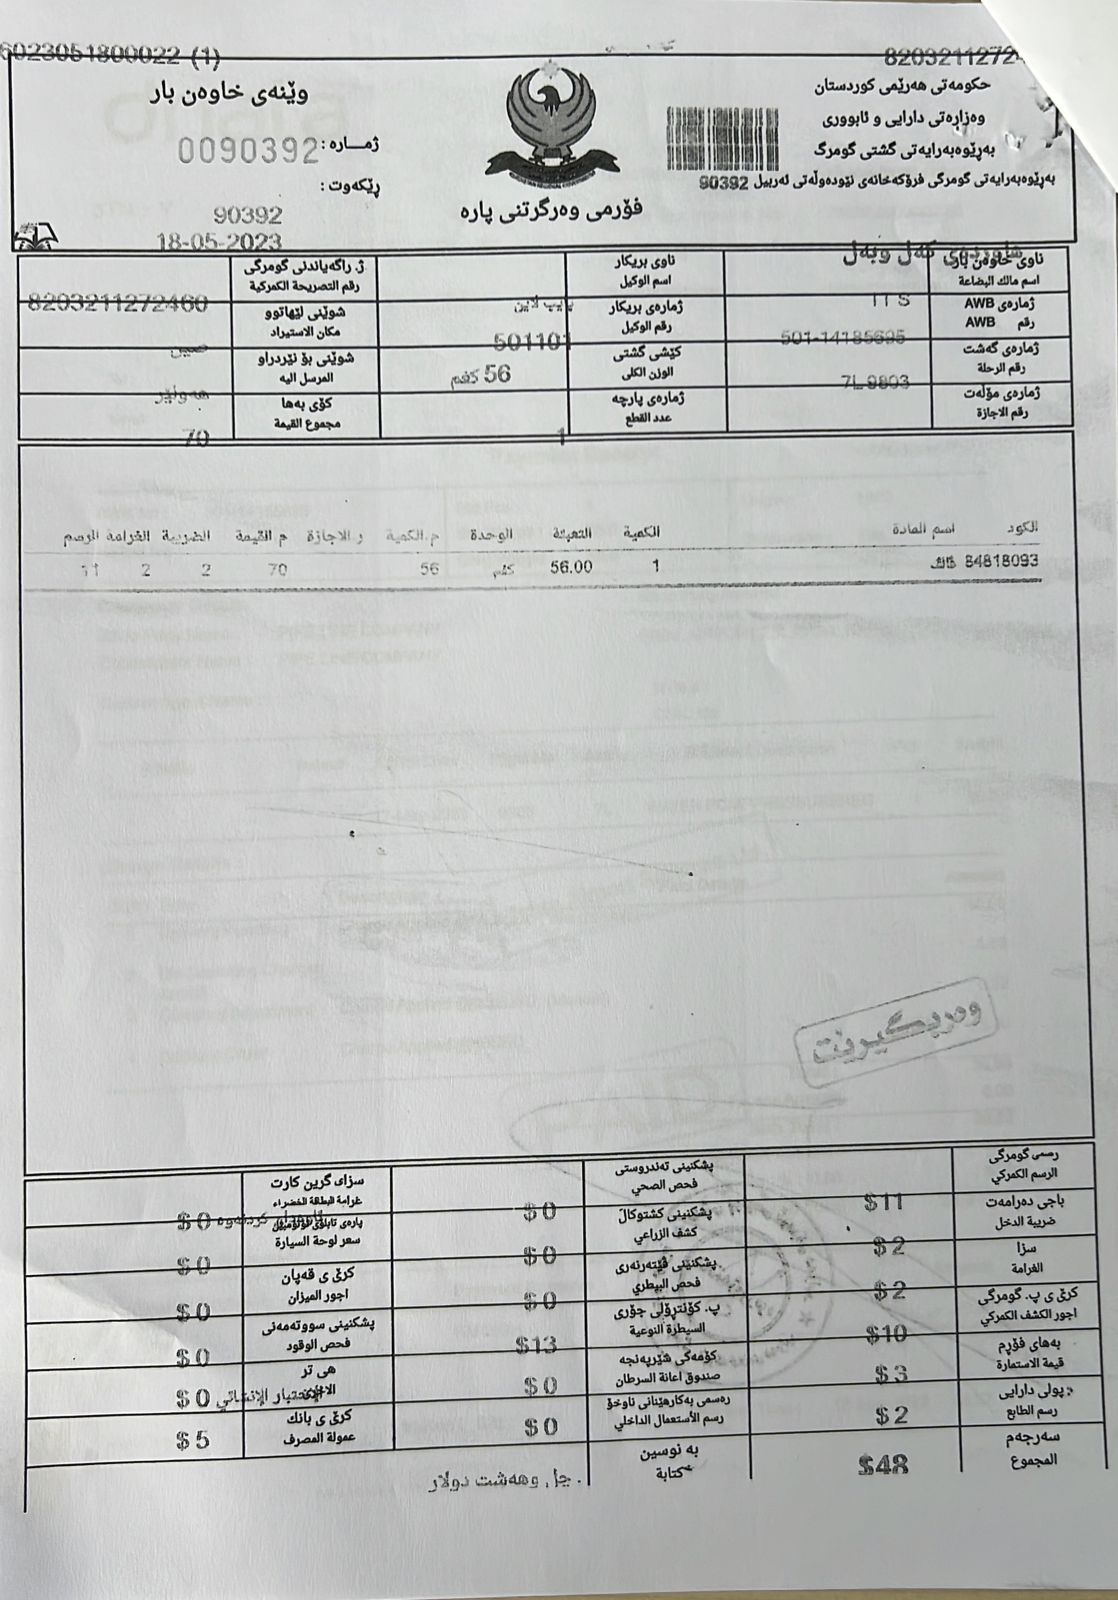 6023051800022 (1)
حکومەتی هەرێمی کوردستان
وەزارەتی دارایی و ئابووری
بەڕێوەبەرایەتی گشتی گومرگ
بەڕێوەبەرایەتی گومرگی فڕۆکەخانەی نێودەوڵەتی ئەربیل 90392
فۆرمی وەرگرتنی پارە
وێنەی خاوەن بار
ژمـارە : 0090392
ڕێکەوت :
90392
18-05-2023
ناوی خاوەن بار
اسم مالك البضاعة
ناوی بریکار
اسم الوكيل
ژ. راگەیاندنی گومرگی
رقم التصريحة الكمركية
8203211272460
ژمارەی AWB
رقم AWB
ITS
501-14185695
ژمارەی بریکار
رقم الوكيل
501101
شوێنی لێهاتوو
مكان الاستيراد
صين
ژمارەی گەشت
رقم الرحلة
7L 9803
کێشی گشتی
الوزن الكلى
56 كغم
شوێنی بۆ نێردراو
المرسل اليه
هەولێر
ژمارەی مۆڵەت
رقم الاجازة
ژمارەی پارچە
عدد القطع
1
کۆی بەها
مجموع القيمة
70
الكود اسم المادة الكمية التعبئة الوحدة م.الكمية ر.الاجازة م القيمة الضريبة الغرامة الرسم
84818093 1 56.00 كغم 56 70 2 2 11
وەربگیرێت
رسمی گومرگی
الرسم الكمركي
$11
پشکنینی تەندروستی
فحص الصحي
$0
سزای گرین کارت
غرامة البطاقة الخضراء
$0
باجی دەرامەت
ضريبة الدخل
$2
پشکنینی کشتوکاڵ
كشف الزراعي
$0
سعر لوحة السيارة
$0
سزا
الغرامة
$2
پشکنینی ڤێتەرنەری
فحص البيطري
$0
کرێ ی قەپان
اجور الميزان
$0
کرێ ی پ. گومرگی
اجور الكشف الكمركي
$10
پ. کۆنترۆڵی جۆری
السيطرة النوعية
$13
پشکنینی سووتەمەنی
فحص الوقود
$0
بەهای فۆرم
قيمة الاستمارة
$3
کۆمەکی شێرپەنجە
صندوق اعانة السرطان
$0
هی تر
الإختبار الإنشائي $0
پولی دارایی
رسم الطابع
$2
رەسمی بەکارهێنانی ناوخۆ
رسم الأستعمال الداخلي
$0
کرێ ی بانك
عمولة المصرف
$5
سەرجەم
المجموع
$48
بە نوسین
كتابة
چل وهەشت دولار